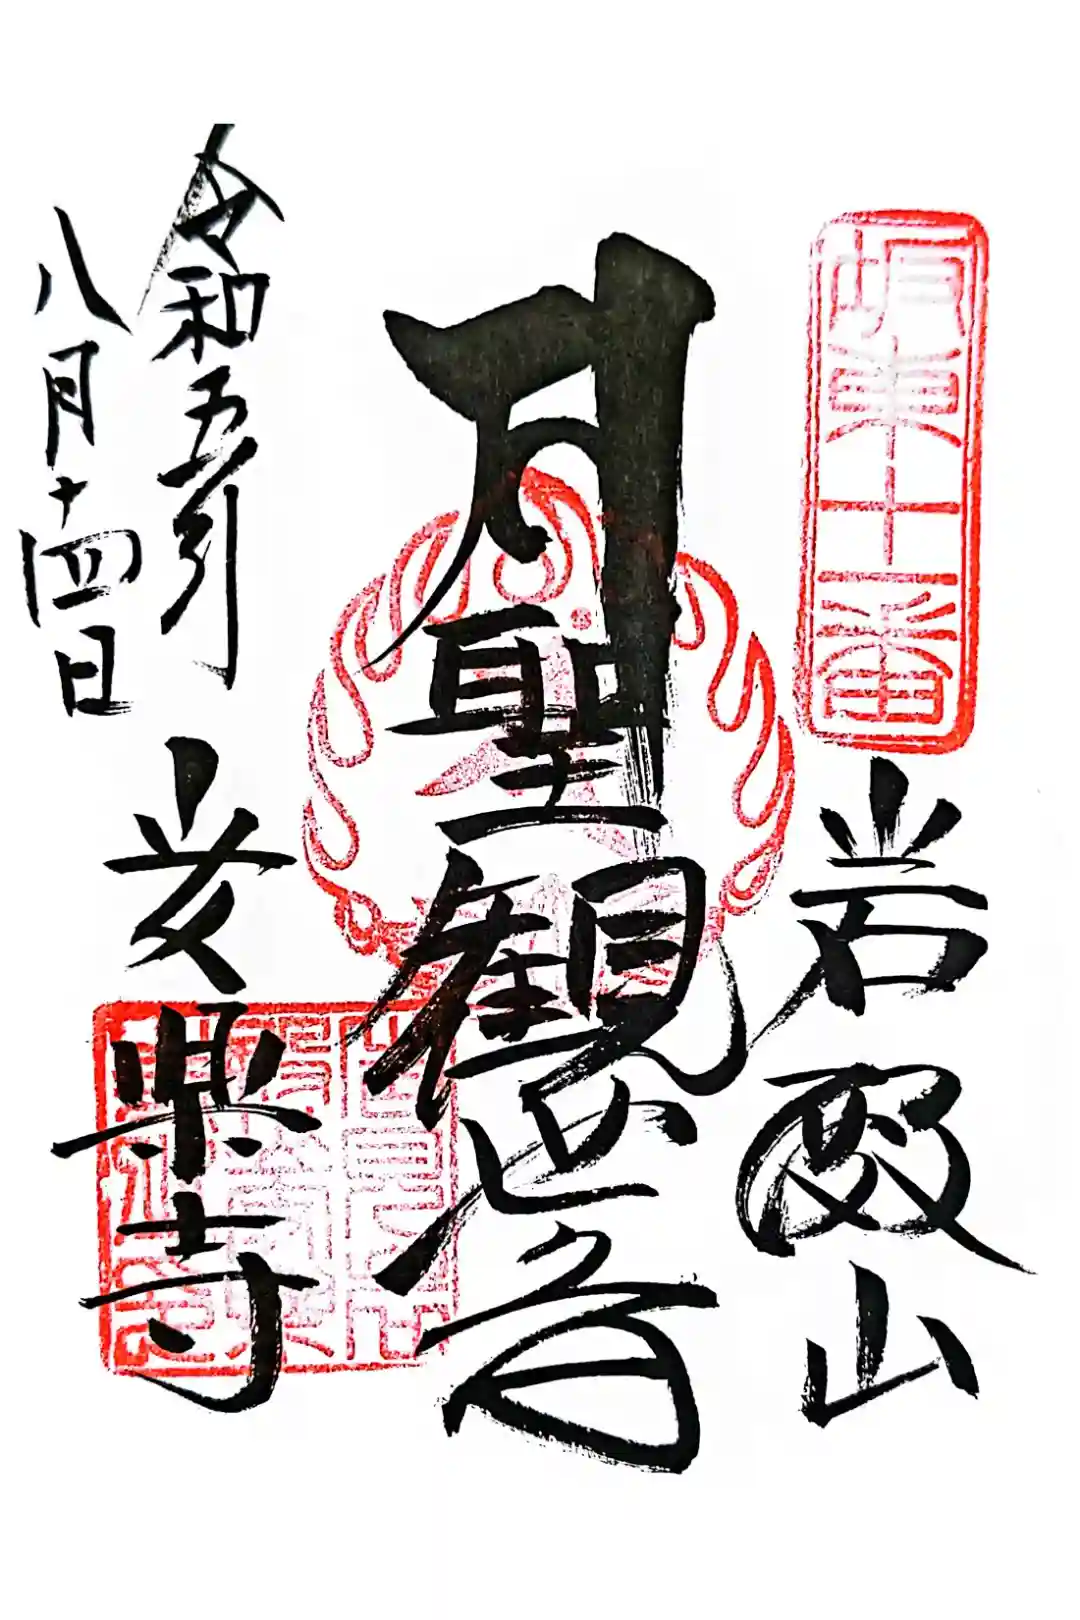 坂東十一番
岩殿山
聖観世音
安楽寺
令和五年
八月十四日